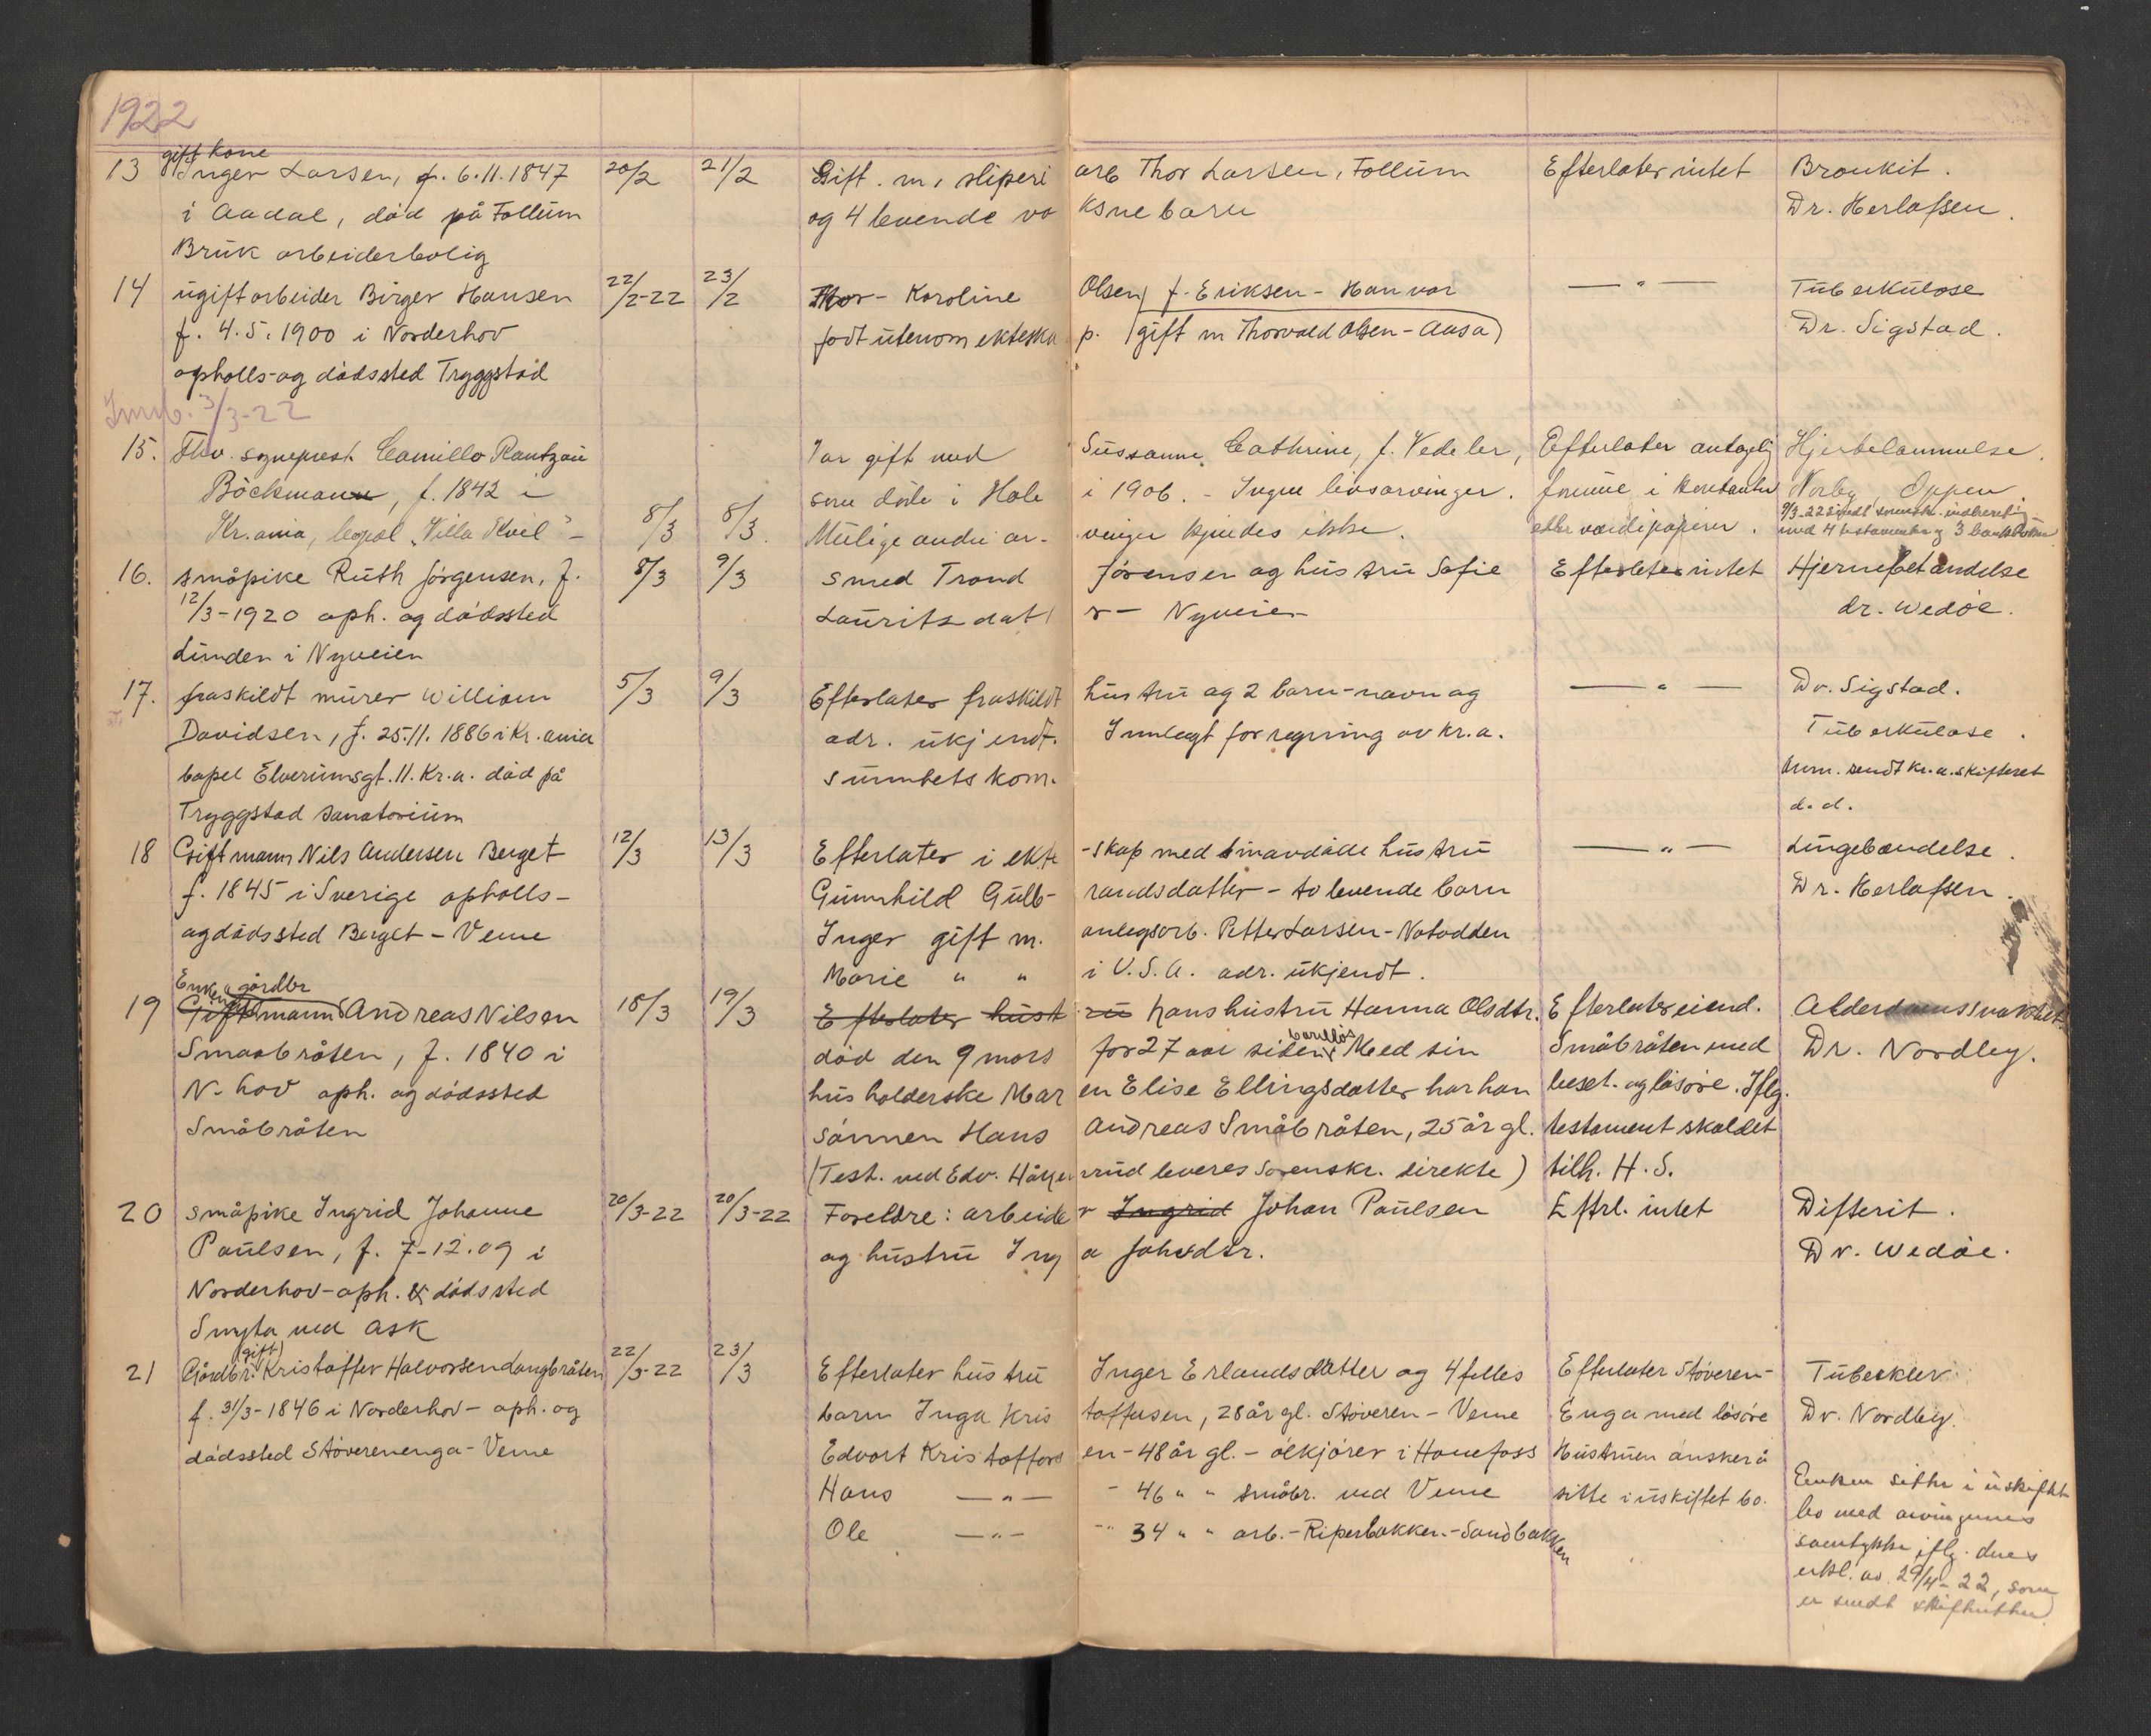 1922
gift kone
13 Inger Larsen, f. 6.11.1847 20/2 21/2 Gift. m. sliperi arb Thor Larsen, Follum Efterlater intet Bronkit.
i Aadal, død på Follum og 4 levende vo ksne barn Dr. Herlofsen.
Bruk arbeiderbolig
14 ugift arbeider Birger Hansen 22/2-22 23/2 Mor - Karoline Olsen f. Eriksen - Han var — " — Tuberkulose
f. 4.5.1900 i Norderhov født utenom ekteska p. (gift m Thorvald Olsen - Aasa) Dr. Sigstad.
opholls- og dødssted Tryggstad
Innb. 3/3-22
15. Fhv. sogneprest Camillo Rantzau Var gift med Sussanne Cathrine, f. Vedeler, Efterlater antagelig Hjertelammelse.
Böckmann, f. 1842 i som døde i Hole i 1906. - Ingen livsarvinger. formue i kontanter Norby, Oppen.
Kr.ania, bopæl "Villa Kvil" - 8/3 8/3. Mulige andre ar- vinger kjendes ikke. eller værdipapirer. 9/3-22 sendt sorensk. indberetning med 4 testamenter og 3 bankbøker
16. småpike Ruth Jørgensen, f. 8/3 9/3 smed Trond Jørensen og hustru Sofie Efterlater intet Hjernebetændelse
12/3-1920 oph. og dødssted Lauritzdat r - Nyveien dr. Wedøe.
Lunden i Nyveien
17. fraskildt murer William 5/3 9/3 Efterlater fraskildt hustru og 2 barn - navn og — " — Dr. Sigstad.
Davidsen, f. 25.11.1886 i Kr.ania adr. ukjendt. Innlagt for regning av Kr.a. Tuberkulose.
bopel Elverumsgt. 11. Kr.a. død på sunnhetskom. Anm. sendt Kr.a. skifteret
Tryggstad sanatorium d.d.
18 Gift mann Nils Andersen Berget 12/3 13/3 Efterlater i ekte -skap med sin avdøde hustru — " — Lungebændelse.
f. 1845 i Sverige opholls- Gunnhild Gulb- randsdatter - to levende barn Dr. Herlofsen.
og dødssted Berget - Veme Inger gift m. anlegsarb. Petter Larsen - Notodden
Marie " " i U.S.A. adr. ukjendt.
Enkem. gårdbr
19 Gift mann Andreas Nilsen 18/3 19/3 Efterlater hust ru hans hustru Hanna Olsdtr. Efterlater eiend. Alderdomssvakhet
Smaabråten, f. 1840 i død den 9 mars for 27 aar siden barnløs Med sin Småbråten med Dr. Nordby.
N-hov oph. og dødssted husholderske Mar en Elise Ellingsdatter har han beset. og løsøre. Iflg.
Småbråten sønnen Hans Andreas Småbråten, 25 år gl. testament skal det
(Test. ved Edv. Hå rud leveres Sorenskr. direkte) tilh. H.S.
20 småpike Ingrid Johanne 20/3-22 20/3-22 Foreldre: arbeide r Ingrid Johan Paulsen Eftrl. intet Difterit.
Paulsen, f. 7-12.09 i og hustru Ing a Johsdtr. Dr. Wedøe.
Norderhov - oph. & dødssted
Smyta ved Ask
(gift)
21 Gårdbr. Kristoffer Halvorsen Langbråten 22/3-22 23/3 Efterlater hustru Inger Erlandsdatter og 4 felles Efterlater Støveren- Tuberkler
f. 31/3-1846 i Norderhov - oph. og barn Inga Kris toffersen, 28 år gl. Støveren - Veme Enga med løsøre Dr. Nordby.
dødssted Støverenenga - Veme Edvart Kristoffers en - 48 år gl. - ølkjører i Hønefoss Hustruen ønsker å
Hans — " — - 46 " " småbr. ved Veme sitte i uskiftet bo. Enken sitter i uskiftet
Ole — " — - " 34 " " arb. - Riperbakken - Sandbakken bo med arvingenes
samtykke iflg. deres
erkl. av 29/4-22, som
er sendt skifteretten